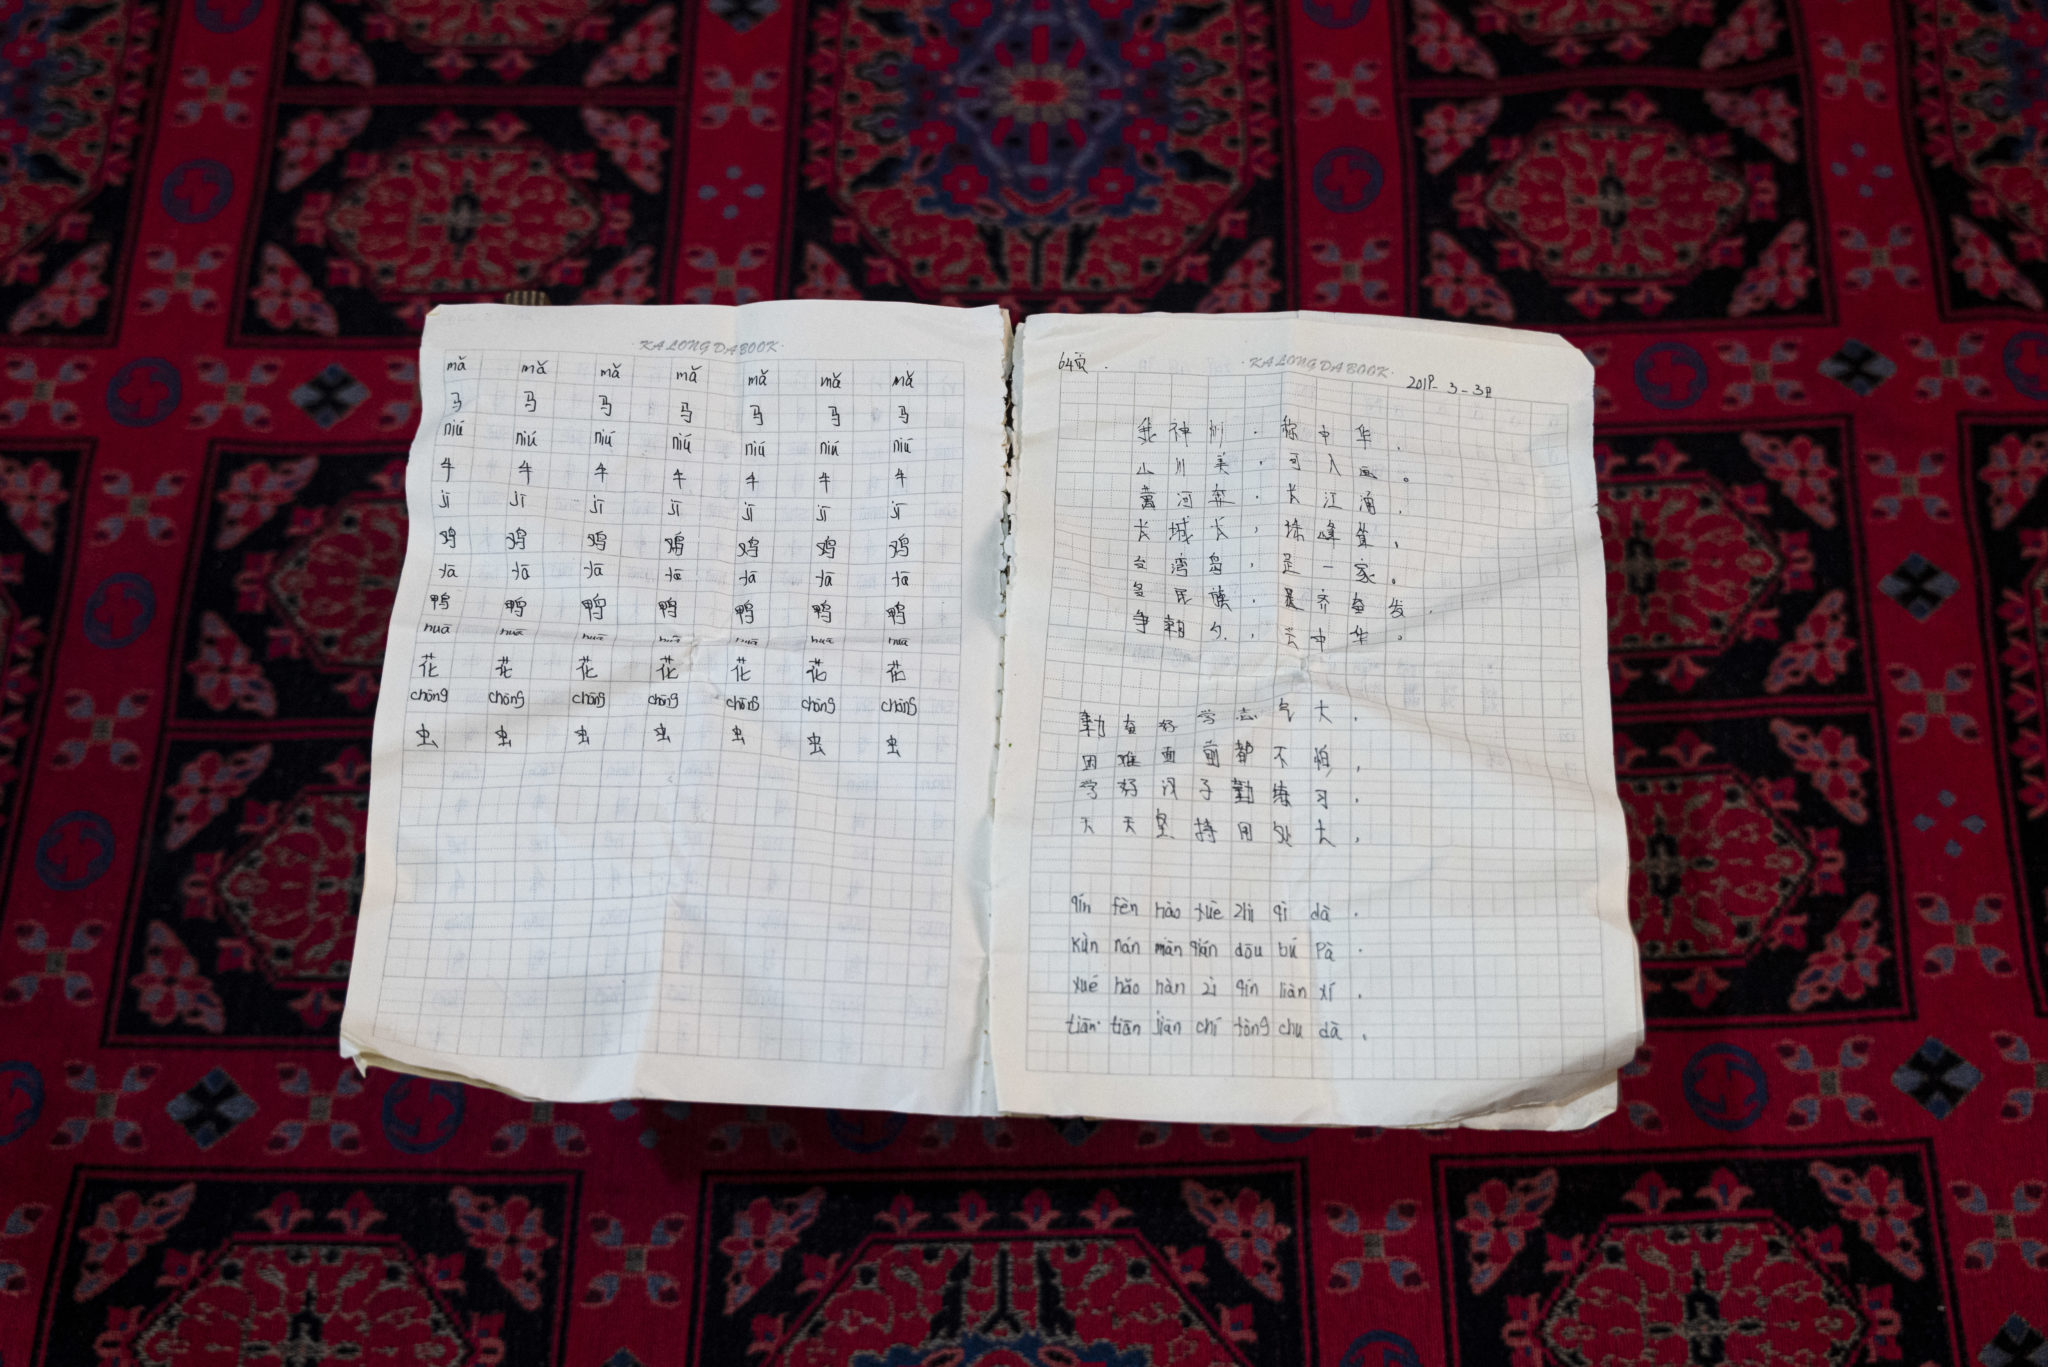 · KALONGDABOOK ·
mǎ mǎ mǎ mǎ mǎ mǎ mǎ
马 马 马 马 马 马 马
niú niú niú niú niú niú niú
牛 牛 牛 牛 牛 牛 牛
jī jī jī jī jī jī jī
鸡 鸡 鸡 鸡 鸡 鸡 鸡
yā yā yā yā yā yā yā
鸭 鸭 鸭 鸭 鸭 鸭 鸭
huā huā huā huā huā huā huā
花 花 花 花 花 花 花
chóng chóng chóng chóng chóng chóng chóng
虫 虫 虫 虫 虫 虫 虫
· KALONGDABOOK ·
64页 .
3-3日
我 神 州 , 称 中 华 ,
山 川 美 , 可 入 画 。
黄 河 奔 , 长 江 涌 ,
长 城 长 , 珠 峰
台 湾 岛 , 是 一 家 。
多 民 族 , 齐 奋 发 ,
争 朝 夕 , 中 华 。
勤 奋 好 学 志 气 大 ,
困 难 面 前 都 不 怕 ,
学 好 汉 子 勤 练 习 ,
天 天 坚 持 用 处 大 ,
qín fèn hào xué zhì qì dà .
kùn nán miàn qián dōu bú Pà .
xué hǎo hàn zì qín liàn xí .
tiān tiān jiān chí yòng chu dà .